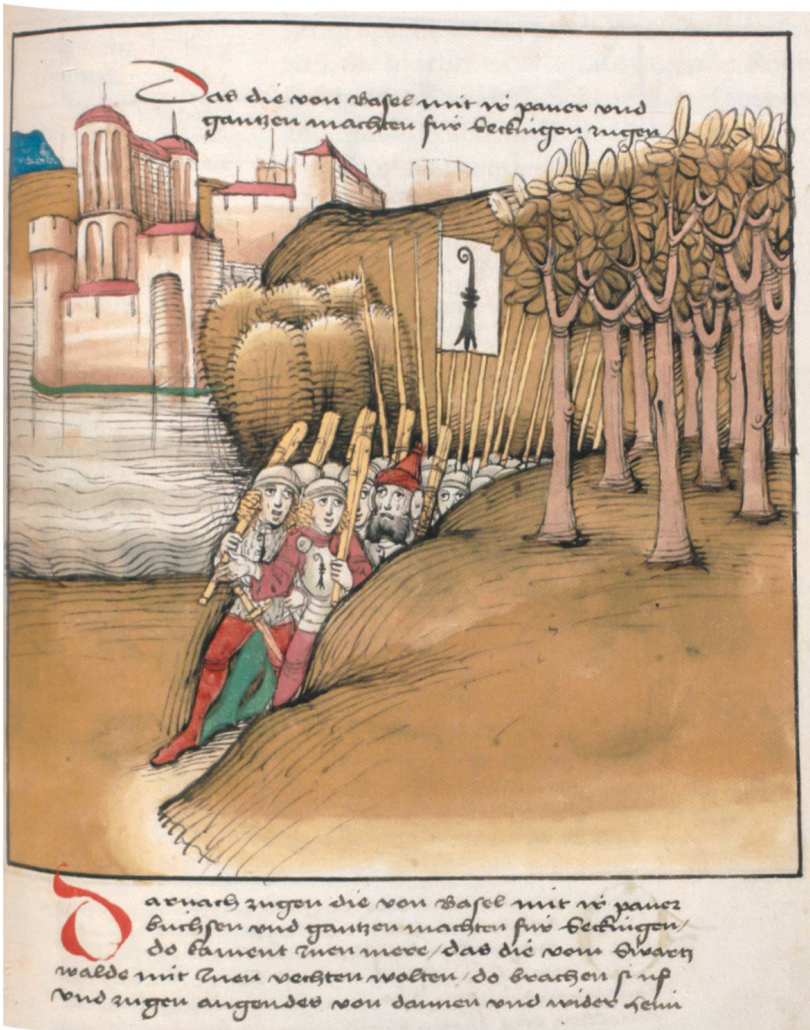 Das die von Basel mit ir paner und
gantzen machten für Seckingen zugen
Darnach zugen die von Basel mit ir paner
büchsen und gantzen machten für Seckingen /
do kament inen mere / das die vom Swartz
walde mit inen vechten wolten / do brachen si uf
und zugen angendes von dannen und wider heim